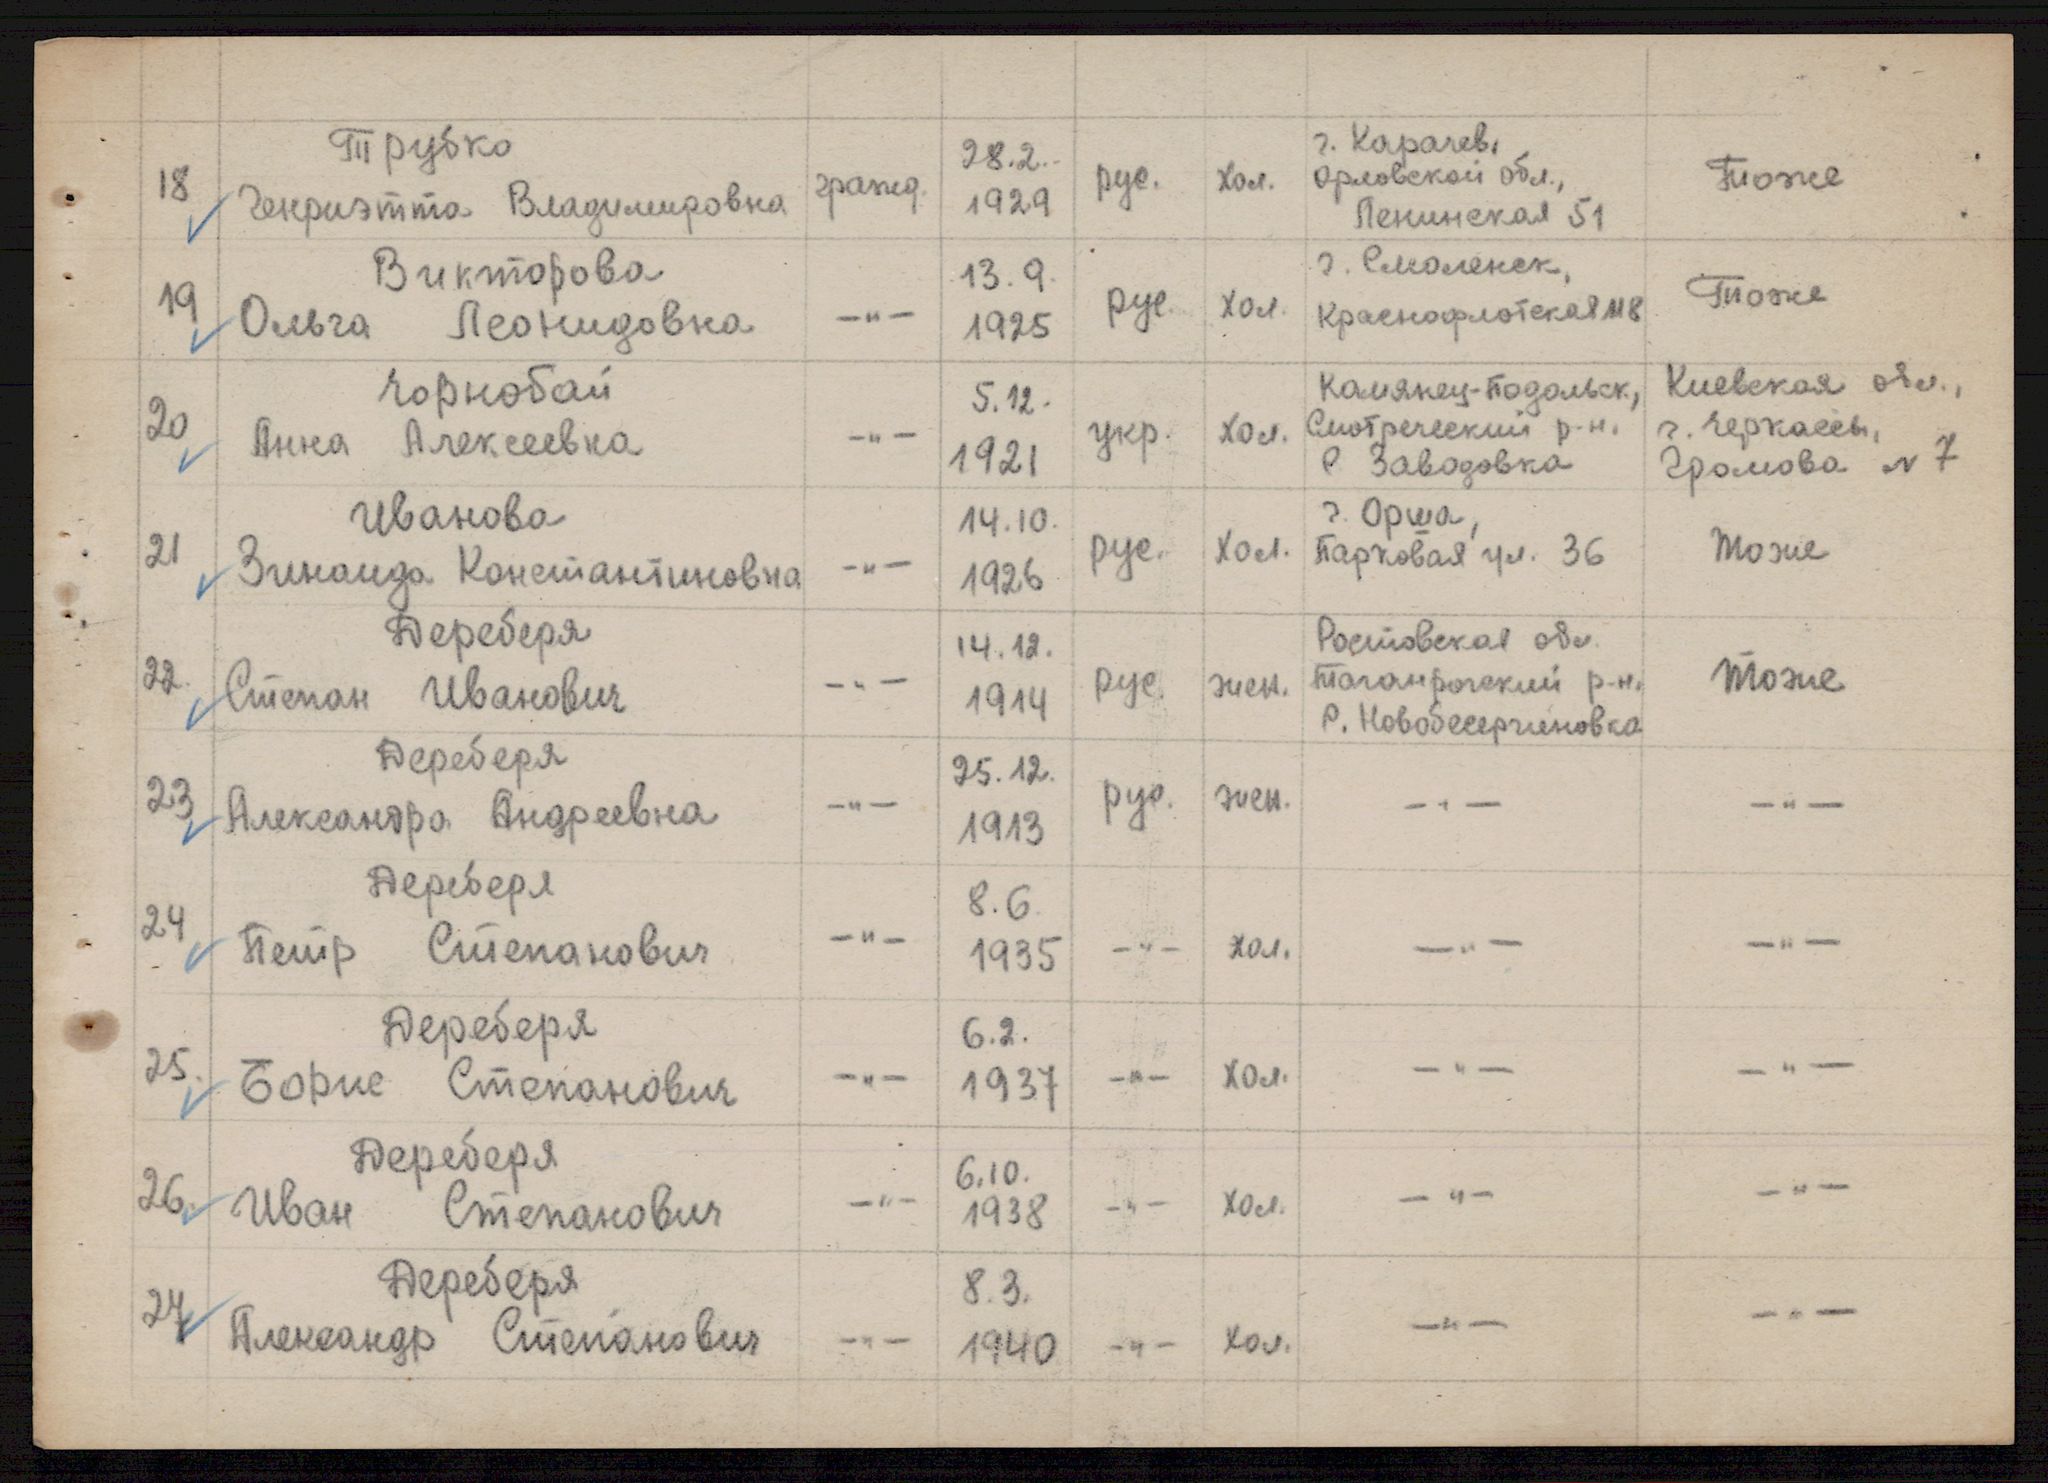 18 Трубко
Генриэтта Владимировна гражд. 28.2. 1929 рус. хол. г. Карачев, Орловской обл., Ленинская 51 Тоже
19 Викторова
Ольга Леонидовна —"— 13.9. 1925 рус. хол. г. Смоленск, Краснофлотская №8 Тоже
20 Чорнобай
Анна Алексеевна —"— 5.12. 1921 укр. хол. Камянец-Подольск, Смотрический р-н. С Заводовка Киевская обл., г. Черкассы, Громова N 7
21 Иванова
Зинаида Константиновна —"— 14.10. 1926 рус. хол. г. Орша, Парковая ул. 36 Тоже
22. Дереберя
Степан Иванович —"— 14.12. 1914 рус. жен. Ростовская обл. Таганрогский р-н. С. Новобесергеновка Тоже
23 Дереберя
Александра Андреевна —"— 25.12. 1913 рус. жен. —"— —"—
24 Дереберя
Петр Степанович —"— 8.6. 1935 —"— хол. —"— —"—
25. Дереберя
Борис Степанович —"— 6.2. 1937 —"— хол. —"— —"—
26. Дереберя
Иван Степанович —"— 6.10. 1938 —"— хол. —"— —"—
27 Дереберя
Александр Степанович —"— 8.3. 1940 —"— хол. —"— —"—